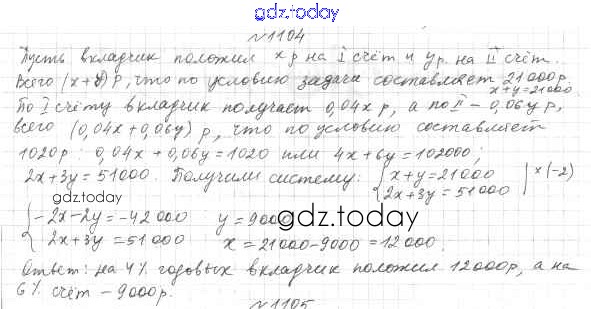 gdz.today
№1104
Пусть вкладчик положил x р на I счёт и y р. на II счёт.
Всего (x+y) р, что по условию задачи составляет 21000р.
x+y=21000
По I счёту вкладчик получает 0,04x р, а по II – 0,06y р,
всего (0,04x+0,06y) р, что по условию составляет
1020р: 0,04x+0,06y=1020 или 4x+6y=102000;
2x+3y=51000. Получили систему: { x+y=21000 | ×(-2)
2x+3y=51000
gdz.today
{ -2x-2y=-42000 y=9000
2x+3y=51000 x=21000-9000=12000.
gdz.today
Ответ: на 4% годовых вкладчик положил 12000р, а на
6% счёт – 9000р.
№1105